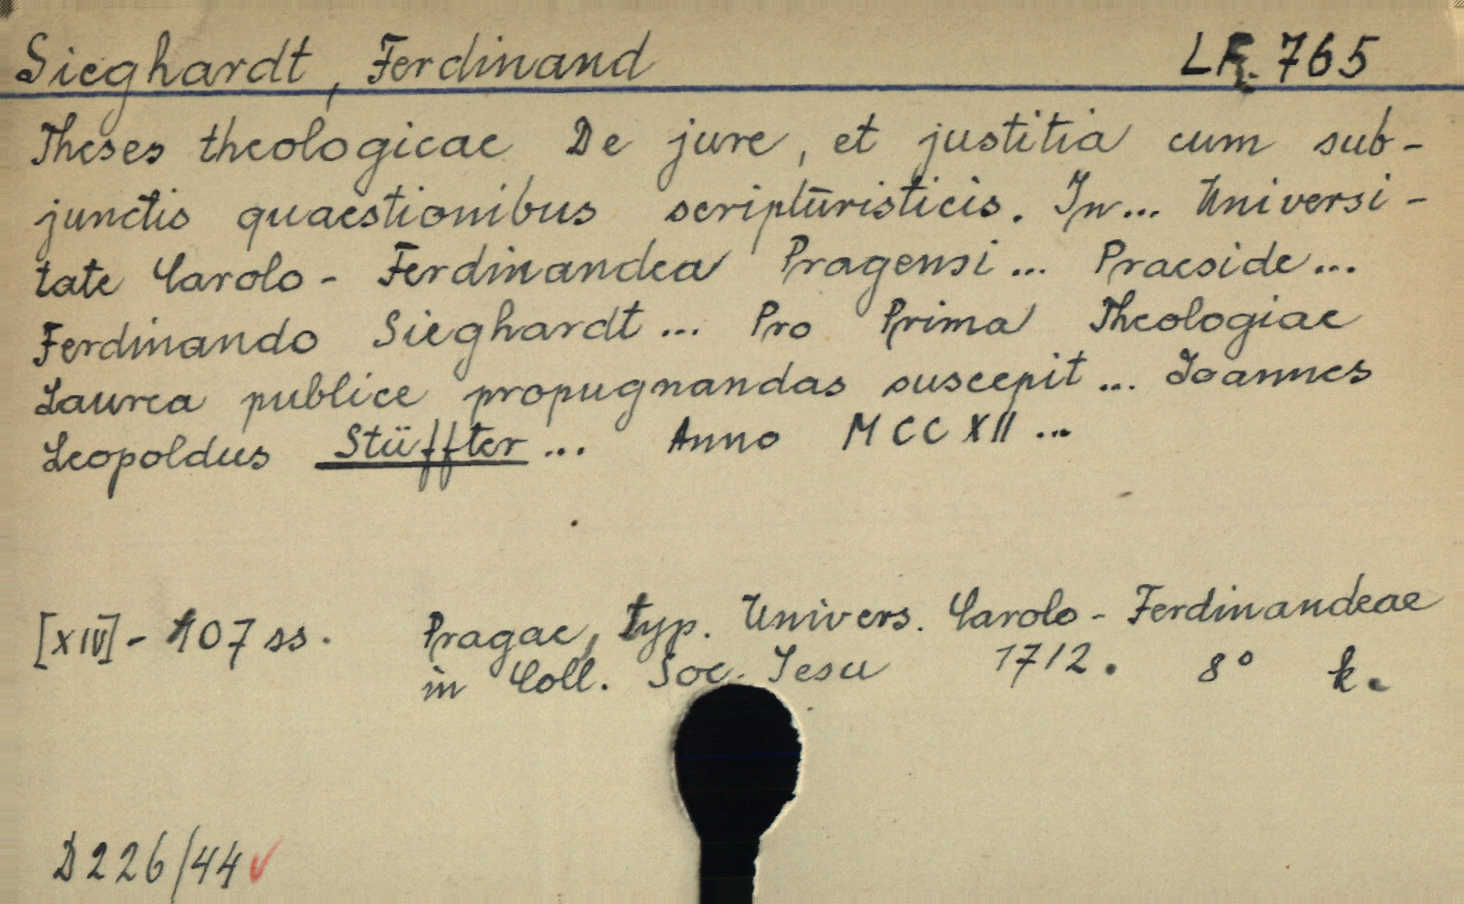 Sieghardt, Ferdinand LF. 765
Theses theologicae De jure, et justitia cum sub-
junctis quaestionibus scripturisticis. In... Universi-
tate Carolo-Ferdinandea Pragensi... Praeside...
Ferdinando Sieghardt... Pro Prima Theologiae
Laurea publice propugnandas suscepit... Joannes
Leopoldus Stüffter... Anno MCCXII...
[XIV]-107 ss. Pragae, typ. Univers. Carolo-Ferdinandeae
in Coll. Soc. Jesu 1712. 8° k.
D226/44